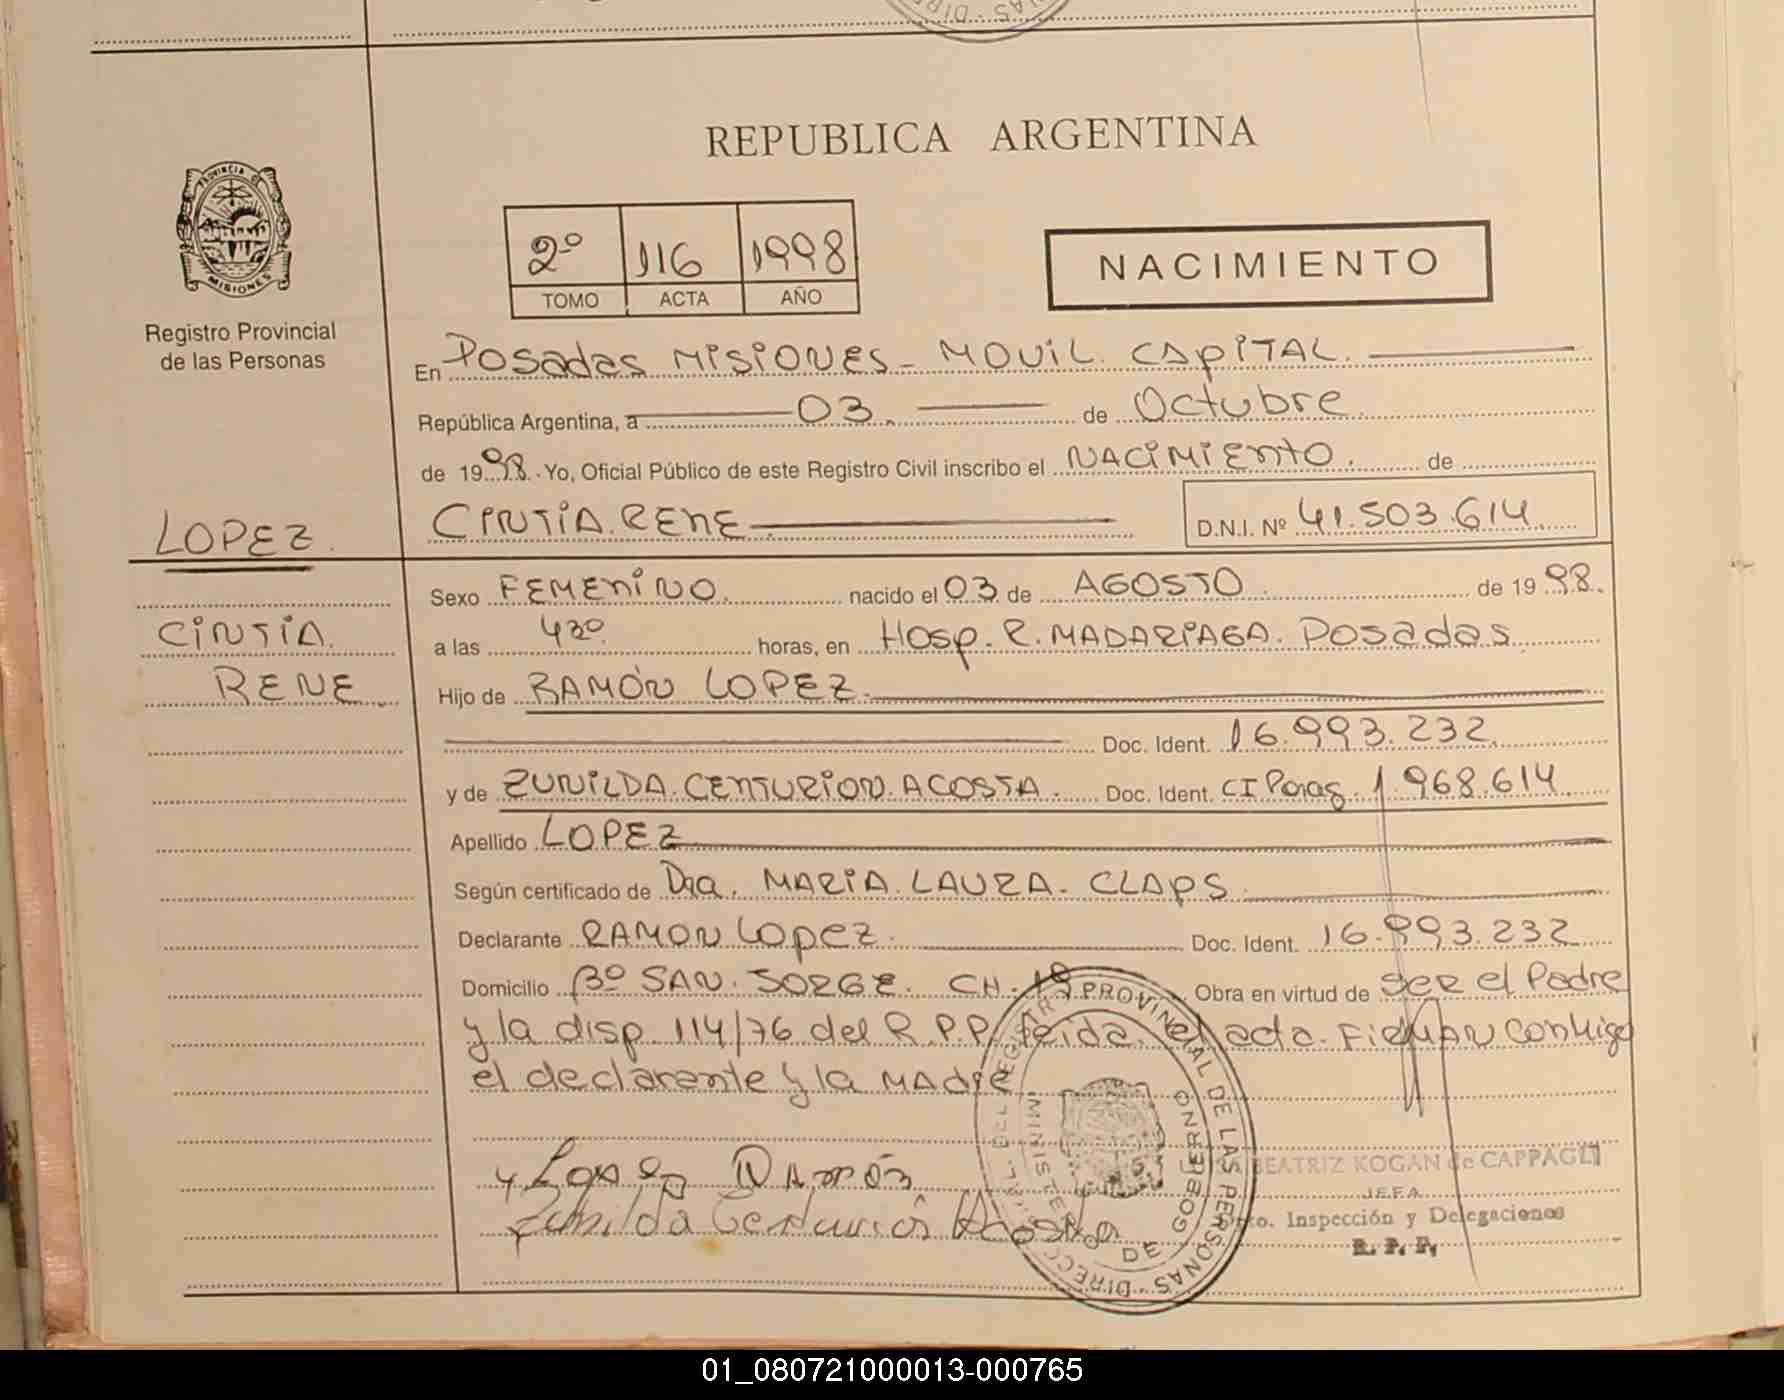 REPUBLICA ARGENTINA
PROVINCIA DE
MISIONES
Registro Provincial
de las Personas
2º 116 1998
TOMO ACTA AÑO
NACIMIENTO
En Posadas MISIONES - MOVIL. CAPITAL.
República Argentina, a 03. de Octubre
de 1998. Yo, Oficial Público de este Registro Civil inscribo el NACIMIENTO. de
LOPEZ. CINTIA. RENE D.N.I. Nº 41.503.614
Sexo FEMENINO. nacido el 03 de AGOSTO de 1998.
CINTIA. a las 430 horas, en Hosp. R. MADARIAGA. Posadas
RENE Hijo de RAMÓN LOPEZ.
Doc. Ident. 16.993.232
y de ZUNILDA. CENTURION. ACOSTA. Doc. Ident. CI Parag. 1.968.614
Apellido LOPEZ
Según certificado de Dra. MARIA. LAURA. CLAPS.
Declarante RAMON LOPEZ. Doc. Ident. 16.993.232
Domicilio Bº SAN. JORGE. CH. Obra en virtud de SER el Padre
y la disp. 114/76 del R.P.P. leida. el acta. FIRMAN conmigo
el declarante y la MAdre
Lopez Ramón
Zunilda Centurión Acosta
DIRECCION GRAL. DEL REGISTRO PROVINCIAL DE LAS PERSONAS
MINISTERIO DE GOBIERNO
BEATRIZ KOGAN de CAPPAGLI
JEFA
Dpto. Inspección y Delegaciones
R. P. P.
01_080721000013-000765